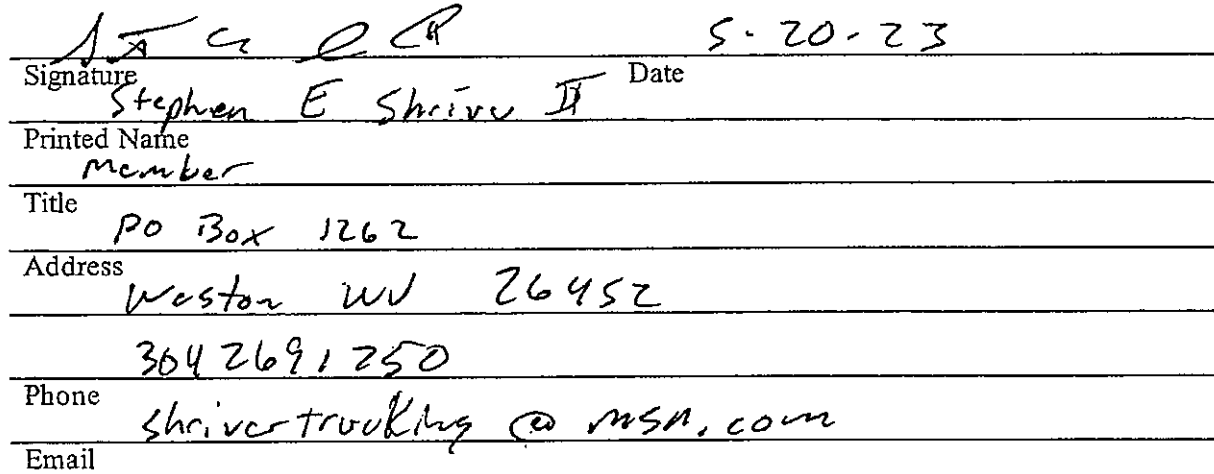 5-20-23
Signature Date
Stephen E Shriver II
Printed Name
Member
Title
PO Box 1262
Address
Weston WV 26452
3042691250
Phone
shrivertrucking@msn.com
Email